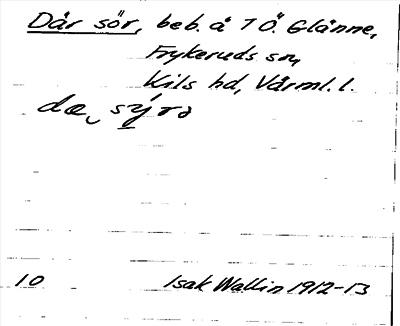 Där sör, beb. å 1 Ö. Glänne,
Frykeruds sn,
Kils hd, Värml. l.
10 Isak Wallin 1912-13